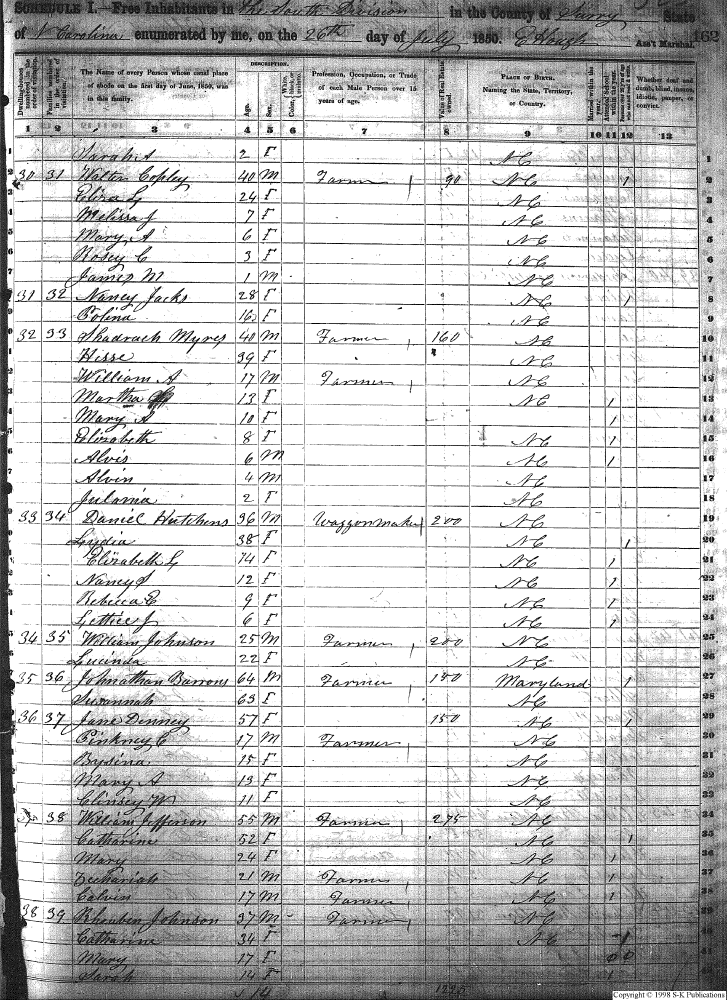 SCHEDULE I.—Free Inhabitants in the South Division in the County of Surry State
of N Carolina enumerated by me, on the 26th day of July 1850. E Hough Ass't Marshal. 162
Dwelling-houses numbered in the order of visitation.
Families numbered in the order of visitation.
The Name of every Person whose usual place of abode on the first day of June, 1850, was in this family.
DESCRIPTION.
Age.
Sex.
Color,
Profession, Occupation, or Trade of each Male Person over 15 years of age.
Value of Real Estate owned.
PLACE OF BIRTH. Naming the State, Territory, or Country.
Married within the year.
Attended School within the year.
Whether deaf and dumb, blind, insane, idiotic, pauper, or convict.
1 2 3 4 5 6 7 8 9 10 11 12 13
1 Sarah A 2 F NC 1
2 30 31 Wilton Copley 40 M Farmer 90 NC 1 2
3 Eliza G 24 F NC 3
4 Melissa J 7 F NC 4
5 Mary A 6 F NC 5
6 Rosey C 3 F NC 6
7 James M 1 M NC 7
8 31 32 Nancy Jacks 28 F NC 1 8
9 16 F NC 9
10 32 33 Shadrach Myres 40 M Farmer 160 NC 10
11 Hisse 39 F NC 11
12 William A 17 M Farmer NC 12
13 Martha 13 F NC 1 13
14 Mary A 10 F 1 14
15 Elizabeth 8 F NC 1 15
16 Alvis 6 M NC 1 16
17 Alvin 4 M NC 17
18 Julania 2 F NC 18
33 34 Daniel Hutchens 36 M Waggonmaker 200 NC 19
Lydia 38 F NC 1 20
Elizabeth G 14 F NC 1 21
Nancy J 12 F NC 1 22
Rebecca E 9 F NC 1
Lettice J 6 F NC 1 24
34 35 William Johnson 25 M Farmer 200 NC 25
Lucinda 22 F NC 26
35 36 Johnathan Barrons 64 M Farmer 100 Maryland 1 27
Susannah 63 F NC 28
36 37 Jane Denney 57 F 150 NC 1 29
Pinkney C 17 M Farmer NC 30
Bysina 15 F NC 31
Mary A 13 F NC
Clinsey W 11 F NC
37 38 William Jefferson 55 M Farmer 275 NC 34
Catharine 52 F NC 1 35
Mary 24 F NC 1 36
Zechariah 21 M Farmer NC 1
Calvin 17 M Farmer NC 1
38 39 Rheuben Johnson 37 M Farmer NC
Catharine 34 F NC 1
Mary 17 F
Sarah 14 F 1
Copyright © 1998 S-K Publications